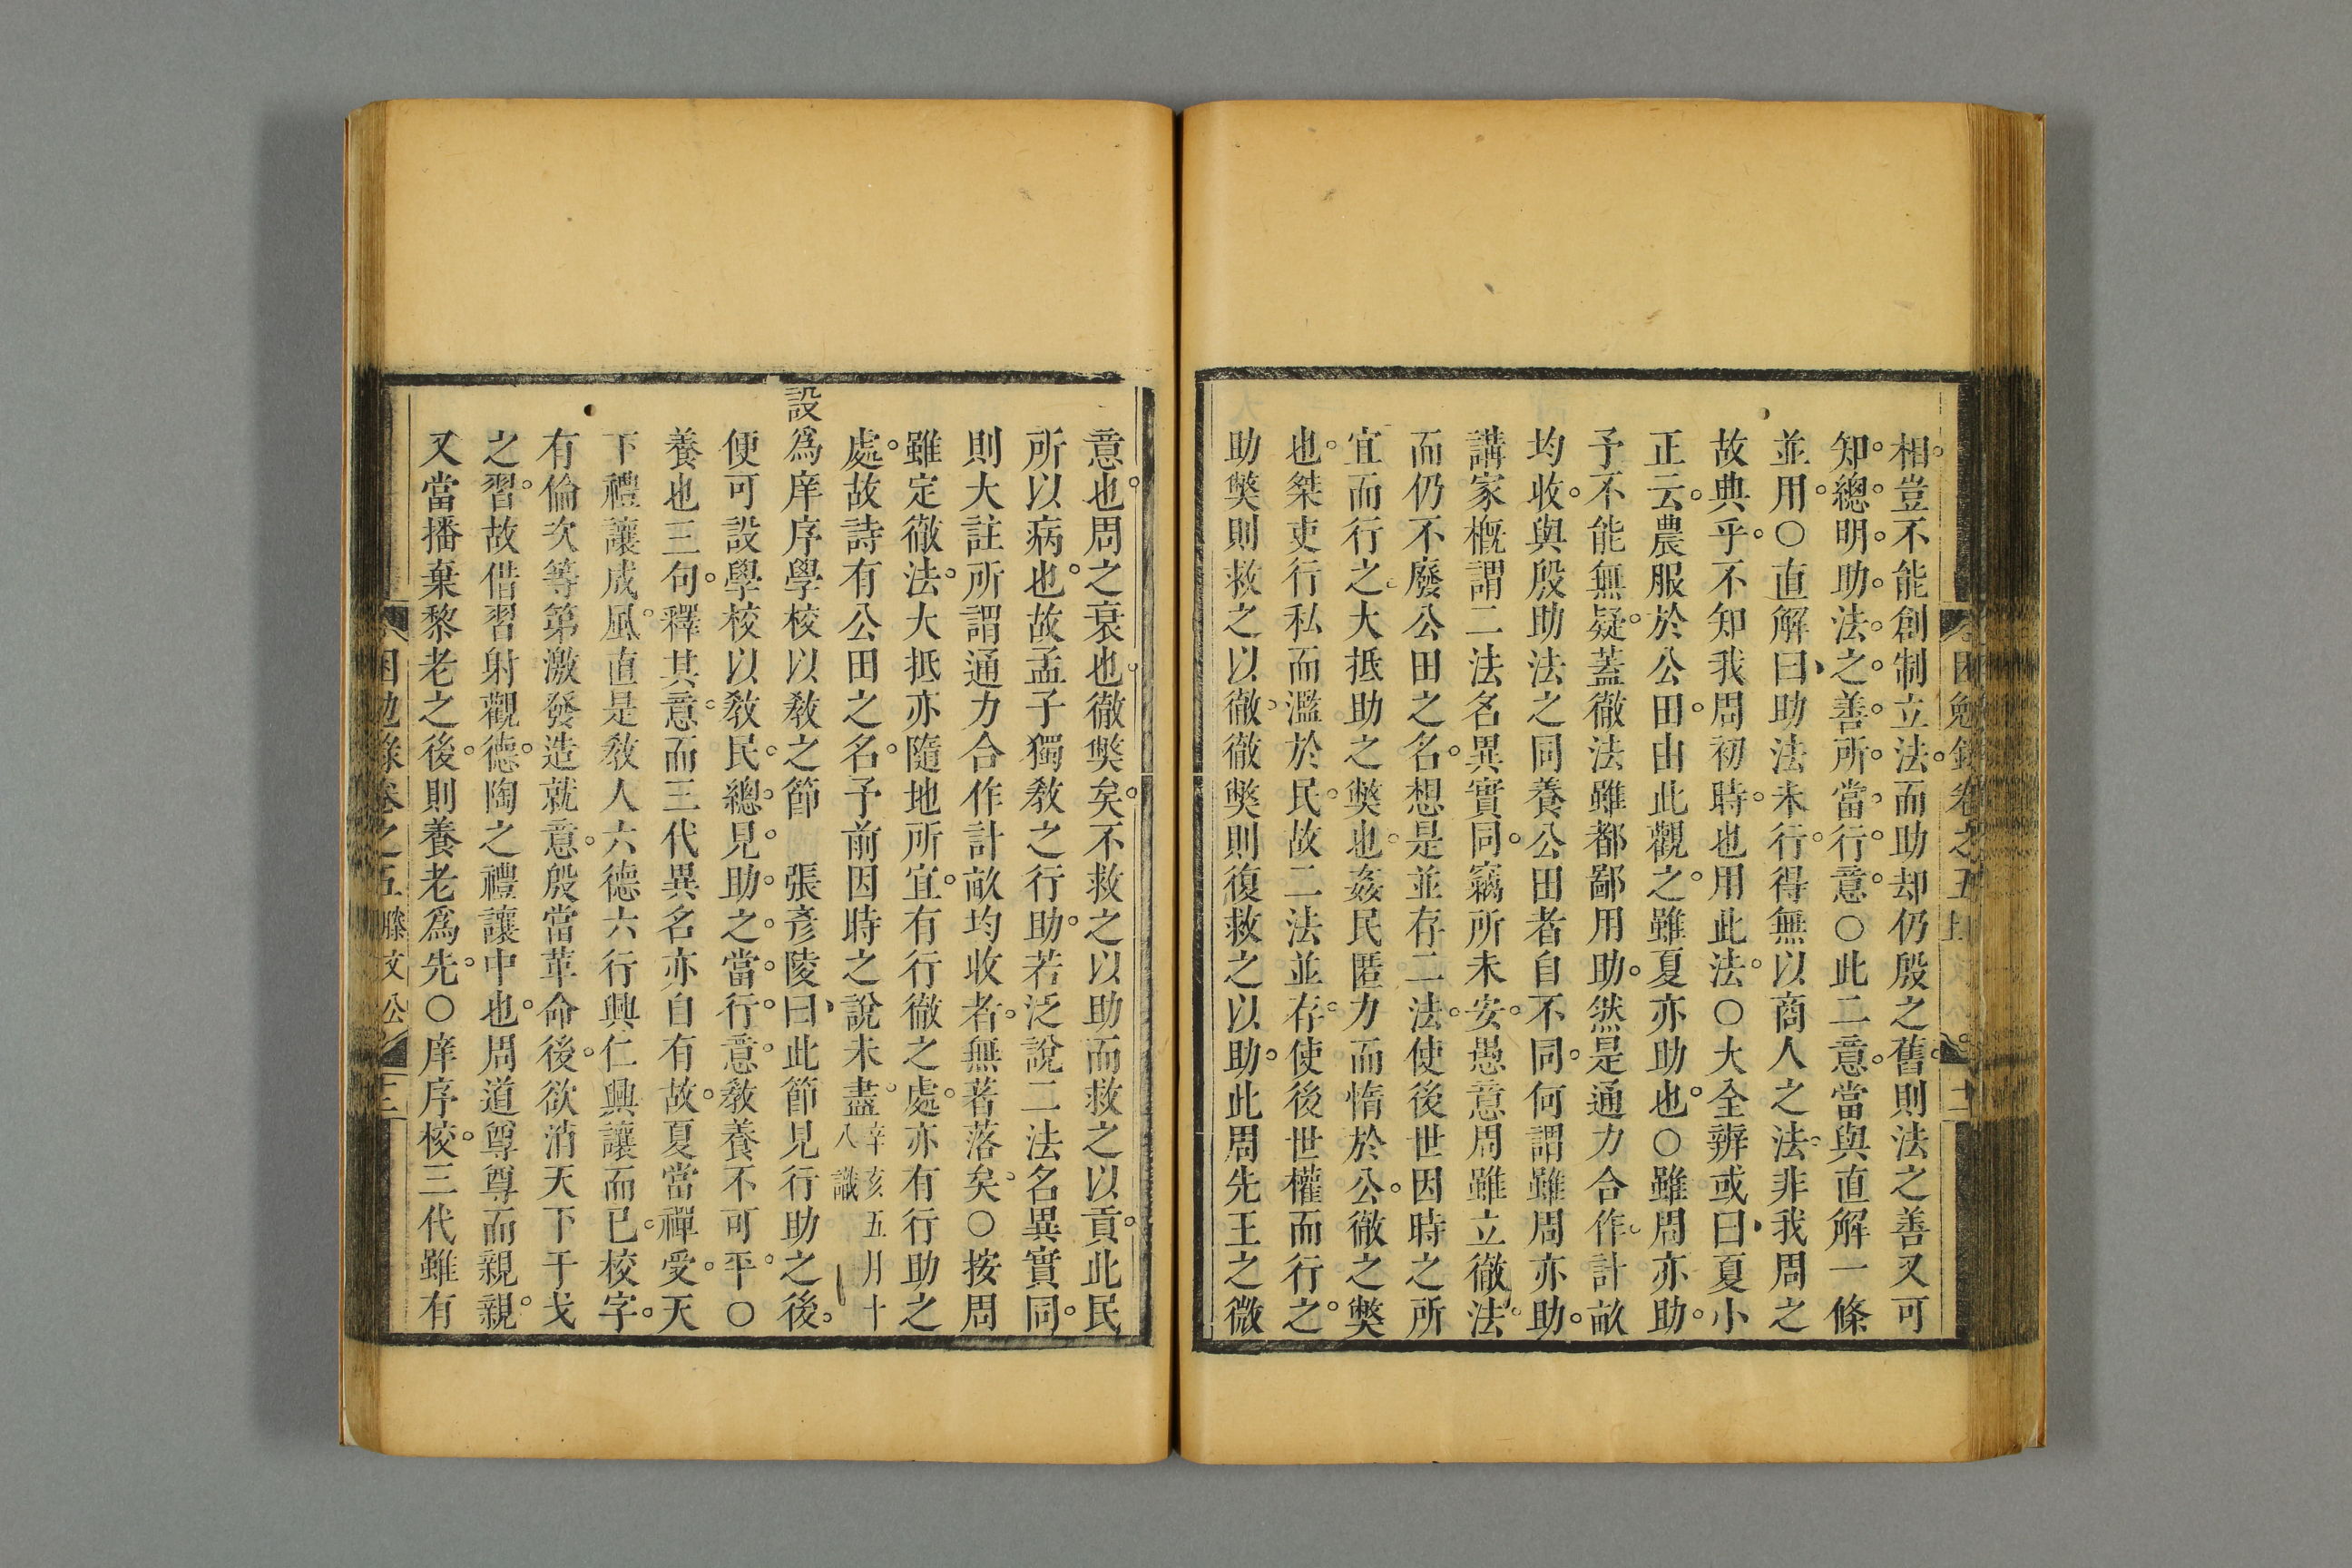 相豈不能創制立法而助却仍殷之舊則法之善又可
知總明助法之善所當行意○此二意當與直解一條
並用○直解曰助法未行得無以商人之法非我周之
故典乎不知我周初時也用此法○大全辨或曰夏小
正云農服於公田由此觀之雖夏亦助也○雖周亦助
予不能無疑蓋徹法雖都鄙用助然是通力合作計畝
均收與殷助法之同養公田者自不同何謂雖周亦助
講家概謂二法名異實同竊所未安愚意周雖立徹法
而仍不廢公田之名想是並存二法使後世因時之所
宜而行之大抵助之獘也姦民匿力而惰於公徹之獘
也桀吏行私而濫於民故二法並存使後世權而行之
助獘則救之以徹徹獘則復救之以助此周先王之微
意也周之衰也徹獘矣不救之以助而救之以貢此民
所以病也故孟子獨教之行助若泛說二法名異實同
則大註所謂通力合作計畝均收者無著落矣○按周
雖定徹法大抵亦隨地所宜有行徹之處亦有行助之
處故詩有公田之名予前因時之說未盡辛亥五月十八識
設為庠序學校以教之節 張彥陵曰此節見行助之後
便可設學校以教民總見助之當行意教養不可平○
養也三句釋其意而三代異名亦自有故夏當禪受天
下禮讓成風直是教人六德六行興仁興讓而已校字
有倫次等第激發造就意殷當革命後欲消天下干戈
之習故借習射觀德陶之禮讓中也周道尊尊而親親
又當播棄黎老之後則養老為先○庠序校三代雖有
困勉錄卷之五 滕文公 三